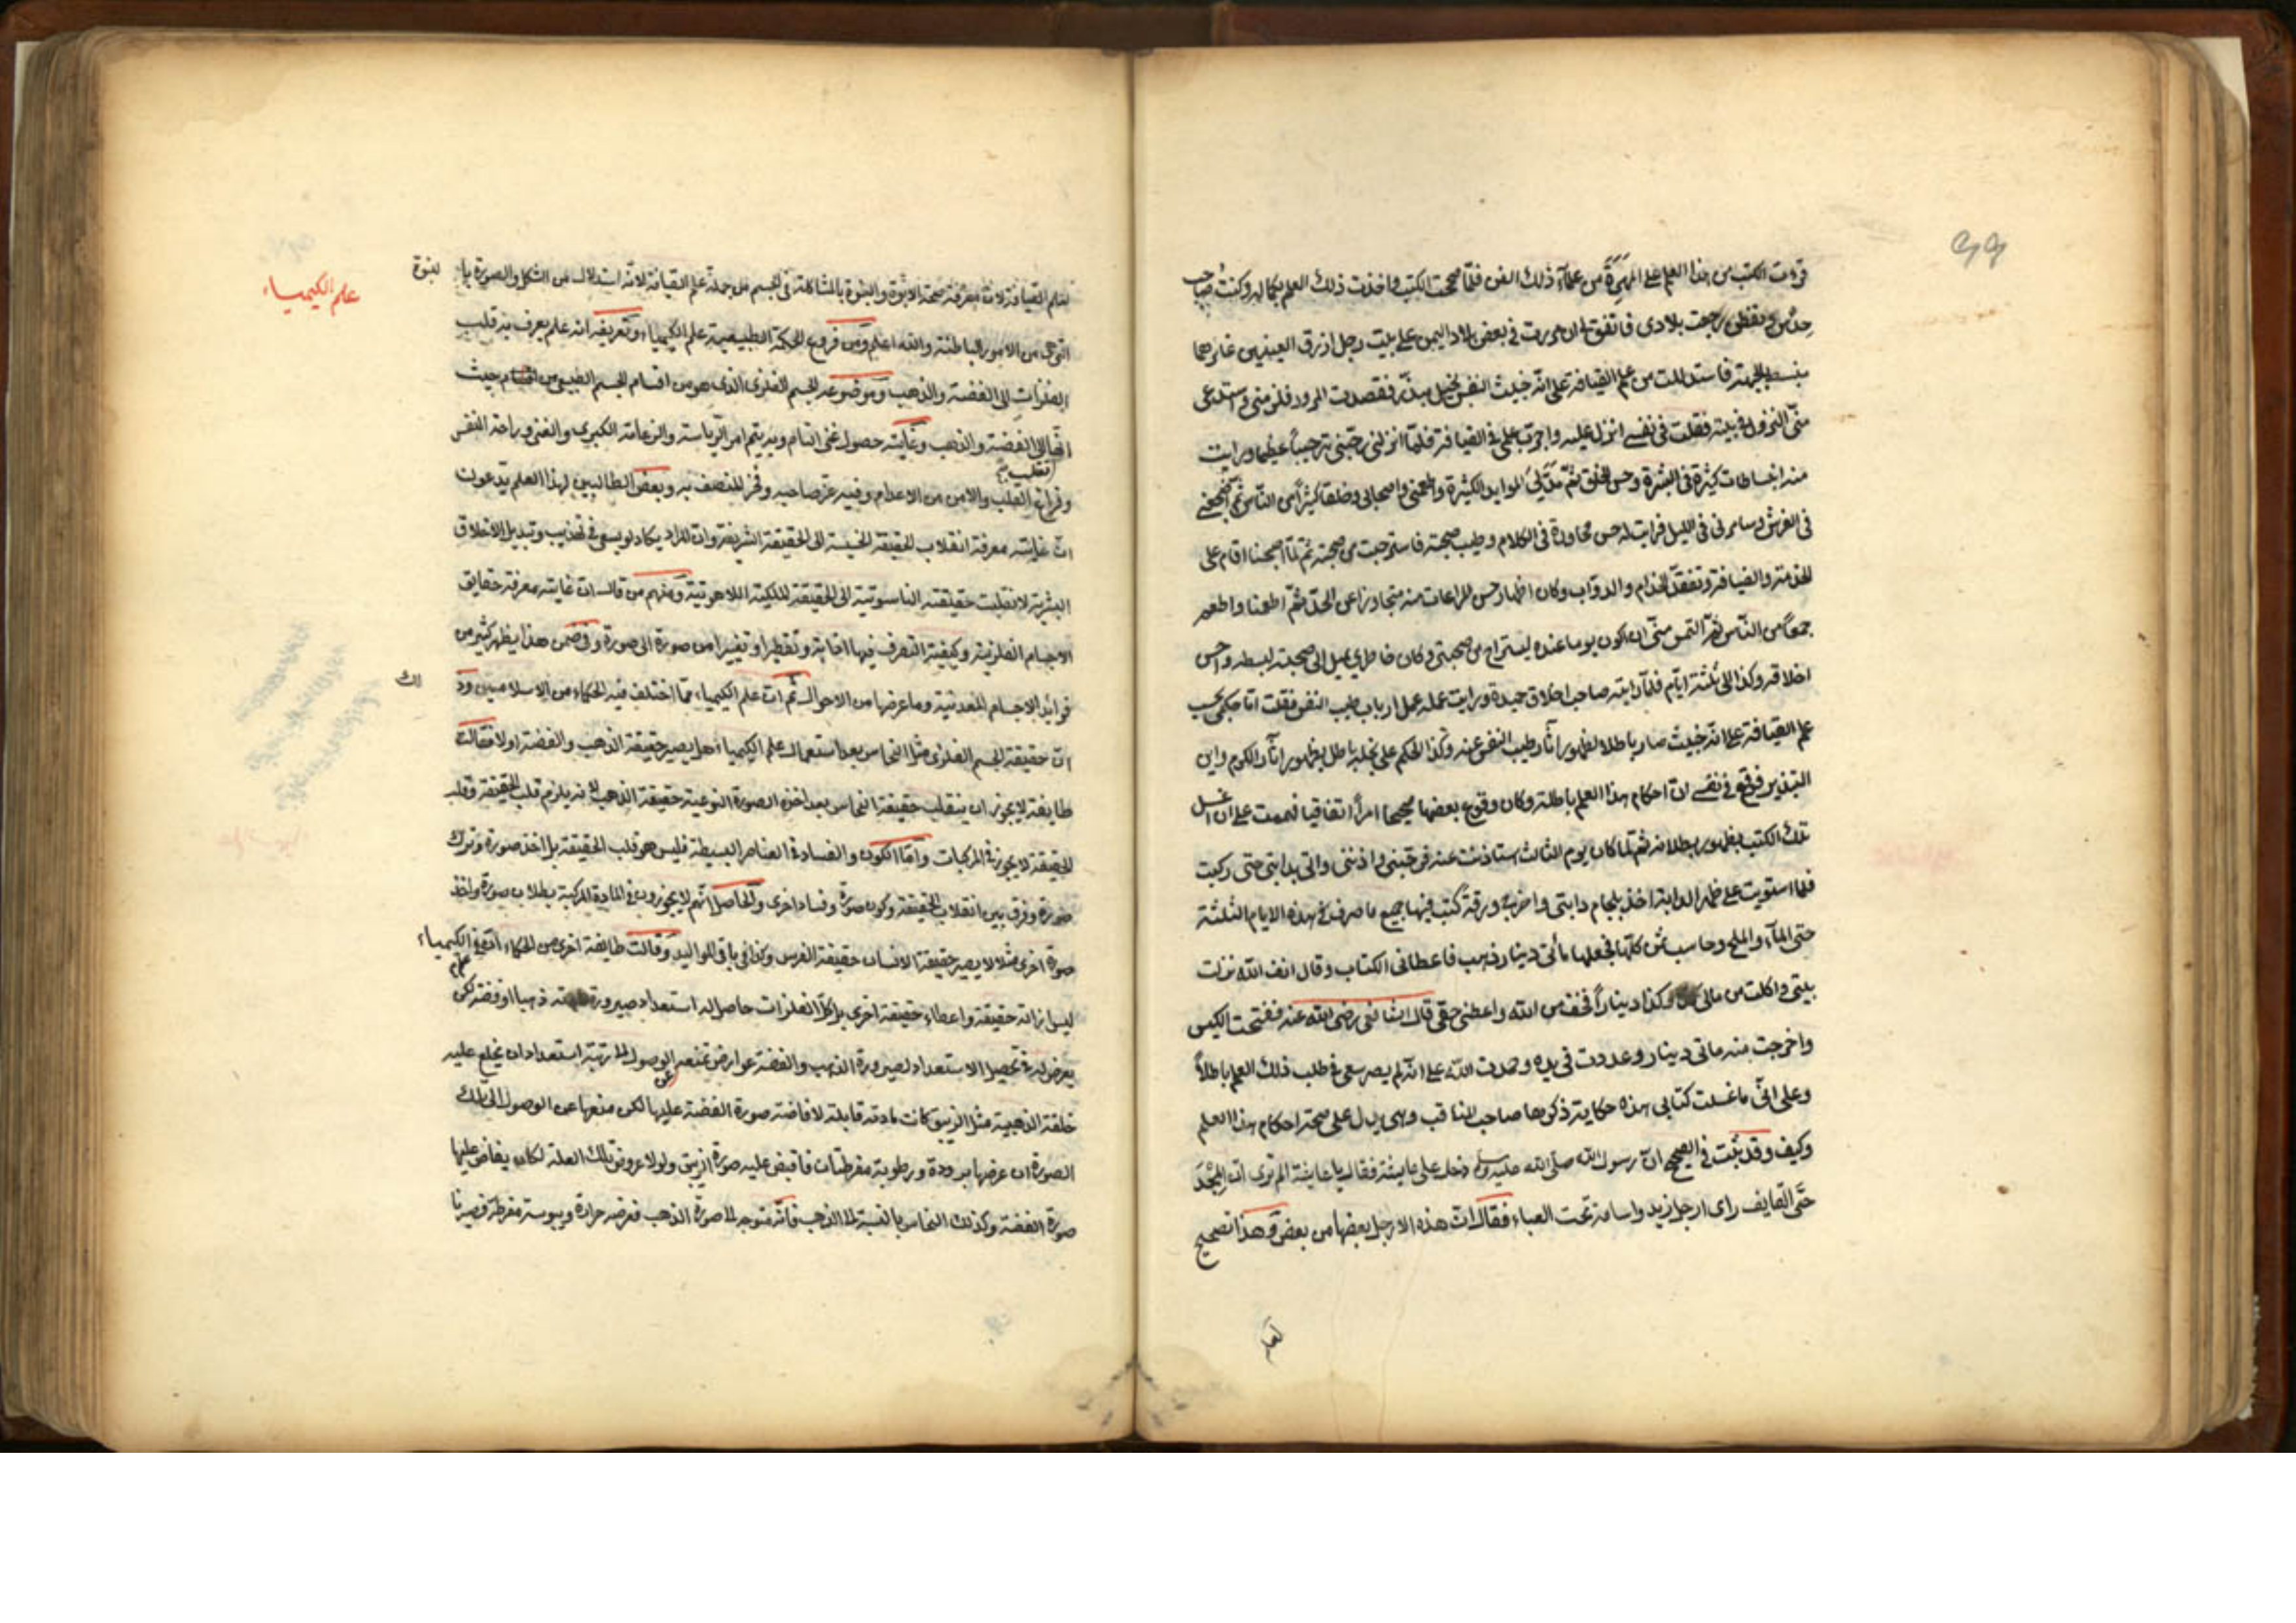 قرأت الكتب من هذا العلم على المهرة من علماء ذلك الفن فلما صححت الكتب واخذت ذلك العلم بكماله وكنت صاحب
حدس وتفطن رجعت بلادى فاتفق لى ان مررت فى بعض بلاد اليمن على بيت رجل ازرق العينين غايرهما
الجبهة فاستدللت من علم القيافة على انه خبيث النفس بخيل فقصدت المرور منى واستدعى
منى النزول فى بيته فقلت فى نفسى انزل عليه واجرب علمى فى القيافة فلما انزلنى رحبنى ترحيبا عظيما ورايت
منه انبساطات كثيرة فى البشرة وحسن الخلق ثم مد لى الموايد الكثيرة واطعمنى واصحابى وخلقا كثيرا من الناس ثم
فى الفرش وسامرنى فى الليل فرايت له حسن محاورة فى الكلام وطيب صحبة من صحبته ثم لما اصبحنا اقام على
الخدمة والضيافة وتفقد الخدام والدواب وكان اظهار حسن المراعات منه متجاوزا عن الحد ثم اطعمنا واطعم
جمعا من الناس ثم التمس منى ان اكون يوما عنده ليستراح من صحبتى وكان خاطرى يميل الى صحبته لبسطه وحسن
اخلاقه وكذا الى ثلثة ايام فلما رايته صاحب اخلاق حميدة ورايت عمله عمل ارباب طيب النفس فقلت انا حكمى بحسب
علم القيافة على انه خبيث صار باطلا لظهور اثار طيب النفس عنه وكذا الحكم على بخله باطل بظهور اثار الكرم واين
التبذير فوقع فى نفسى ان احكام هذا العلم باطلة وكان وقوع بعضها صحيحا امرا اتفاقيا فعزمت على ان اغسل
تلك الكتب بظهور بطلانه ثم لما كان يوم الثالث استاذنت عنه فرحبنى واذننى واتى بدابتى حتى ركبت
فلما استويت على ظهر الدابة اخذ بلجام دابتى واخرج ورقة كتب فيها جميع ما صرف فى هذه الايام الثلثة
حتى الماء والملح وحاسب ثمن كلها فجعلها مأتى دينار ذهب فاعطانى الكتاب وقال اتق الله نزلت
بيتى واكلت من مالى كذا وكذا دينارا فخف من الله واعطنى حقى قال الشافعى رضى الله عنه ففتحت الكيس
واخرجت منه ماتى دينار وعددت فى يده وحمدت الله على انه لم يصر سعى فى طلب ذلك العلم باطلا
وعلى انى ما غسلت كتابى هذه حكاية ذكرها صاحب المناقب وهى يدل على صحة احكام هذا العلم
وكيف وقد ثبت فى الصحيح ان رسول الله صلى الله عليه وسلم دخل على عايشة فقال يا عايشة الم ترى ان المجزز
حتى القايف راى ارجل زيد واسامة تحت العباء فقال ان هذه الارجل بعضها من بعض وهذا تصحيح
لعلم
علم الكيمياء
لعلم القيافة لان معرفة صحة الابوة والبنوة بالمشاكلة فى الجسم من جملة علم القيافة لانه استدلال من الشكل والصورة بالبنوة
التى هى من الامور الباطنة والله اعلم ومن فروع الحكمة الطبيعية علم الكيمياء وتعريفه انه علم يعرف به قلب
الفلزات الى الفضة والذهب وموضوعه الجسم الفلزى الذى هو من اقسام الجسم الطبيعى من حيث
انقلابه الى الفضة والذهب وغايته حصول غنى التام وبه يتم امر الرياسة والزعامة الكبرى والغنى وراحة النفس
وفراغ القلب والامن من الاعدام وفيه عز صاحبه وفخر للمتصف به وبعض الطالبين لهذا العلم يدعون
ان غايته معرفة انقلاب الحقيقة الخسيسة الى الحقيقة الشريفة وان المراد يكاد لو يسعى فى تهذيب وتبديل الاخلاق
البشرية لانقلبت حقيقته الناسوتية الى الحقيقة الملكية اللاهوتية ومنهم من قال ان غايته معرفة حقايق
الاجسام الفلزية وكيفية التصرف فيها اذابة وتقطيرا وتغييرا من صورة الى صورة وفى ضمن هذا يظهر كثير من
فوائد الاجسام المعدنية وما عرضها من الاحوال ثم ان علم الكيمياء مما اختلف فيه الحكماء من الاسلاميين وذلك
ان حقيقة الجسم الفلزى مثل النحاس بعد استعمال علم الكيمياء هل يصير حقيقة الذهب والفضة اولا فقالت
طايفة لا يجوز ان ينقلب حقيقة النحاس بعد اخذه الصورة النوعية حقيقة الذهب لانه يلزم قلب الحقيقة وقلب
الحقيقة لا يجوز فى المركبات واما الكون والفساد فى العناصر البسيطة فليس هو قلب الحقيقة بل اخذ صورة وترك
صورة وفرق بين انقلاب الحقيقة وكون صورة وفساد اخرى والحاصل انهم لا يجوزون فى المادة المركبة بطلان صورة واخذ
صورة اخرى مثلا لا يصير حقيقة الانسان حقيقة الفرس وكذا فى باقى المواليد وقالت طايفة اخرى من الحكماء ان علم الكيمياء
ليس ازالة حقيقة واعطاء حقيقة اخرى بل كل الفلزات حاصل له استعداد صيرورته ذهبا او فضة لكن
يعرض له فى تحصيل الاستعداد لصيرورة الذهب والفضة عوارض تمنعه عن الوصول الى مرتبة استعداد ان يخلع عليه
خلقة الذهبية مثل الزيبق كانت مادته قابلة لافاضة صورة الفضة عليها لكن منعها عن الوصول الى تلك
الصورة ان عرضها برودة ورطوبة مفرطتان فافيض عليه صورة الزيبق ولولا عروض تلك العلة لكان يفاض عليها
صورة الفضة وكذلك النحاس بالنسبة الى الذهب فانه متوجه الى صورة الذهب فعرضه حرارة ويبوسة مفرطة فصيرنا